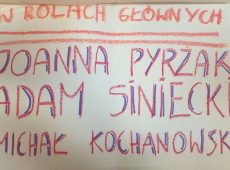 W ROLACH GŁÓWNYCH
JOANNA PYRZAK
ADAM SINIECKI
MICHAŁ KOCHANOWSK